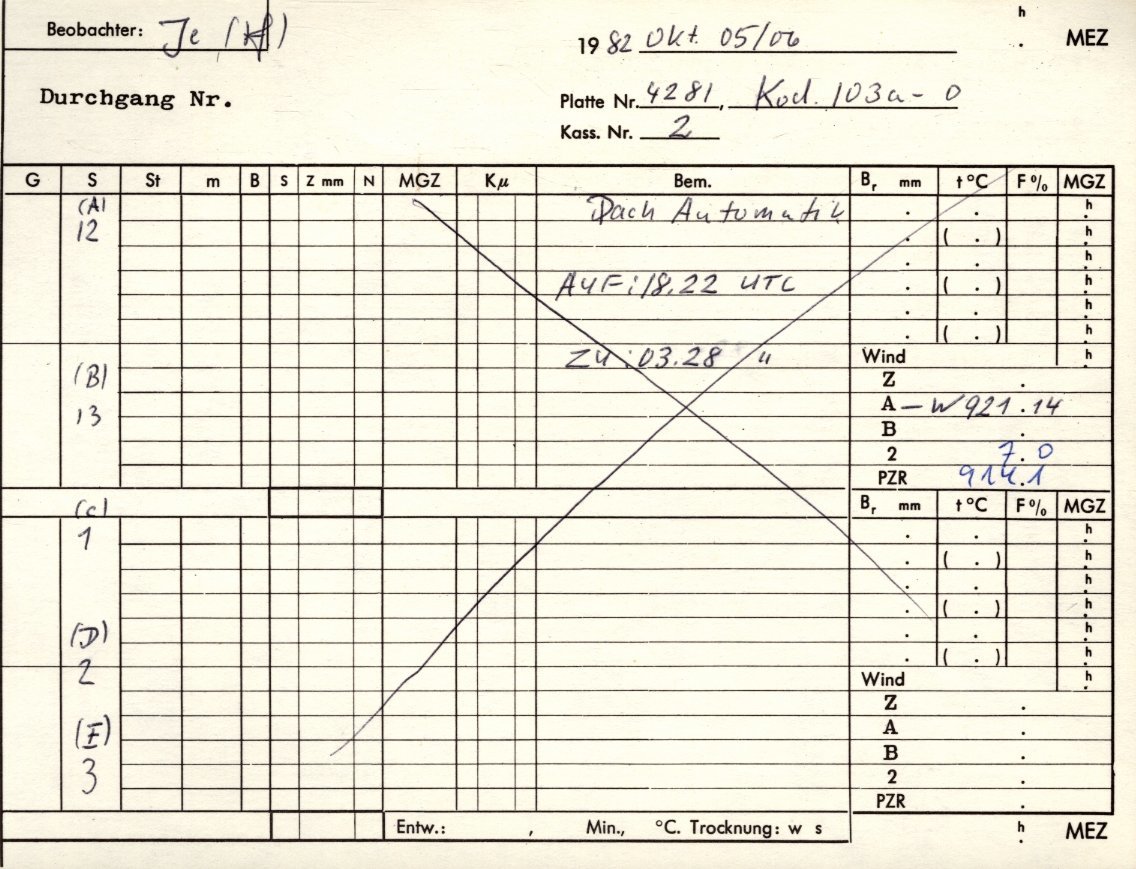 Beobachter: Je (Kf)
h
.
MEZ
19 82 Okt. 05/06
Durchgang Nr.
Platte Nr. 4281, Kod. 103a-0
Kass. Nr. 2
G S St m B S Z mm N MGZ Kμ Bem. Br mm t°C F% MGZ
(A) Dach Automatik . . h
12 . ( . ) h
. . h
Auf: 18.22 UTC . ( . ) h
. . h
. ( . )
h
Zu: 03.28 " Wind h
(B) Z .
A – W 921.14
13 B .
2 7.0
PZR 914.1
(C) Br mm t°C F% MGZ
1 . . h
. ( . ) h
. . h
. ( . ) h
(D) . . h
. ( . ) h
2 Wind h
Z .
(E) A .
B .
3 2 .
PZR .
Entw.: , Min., °C. Trocknung: w s
h
.
MEZ